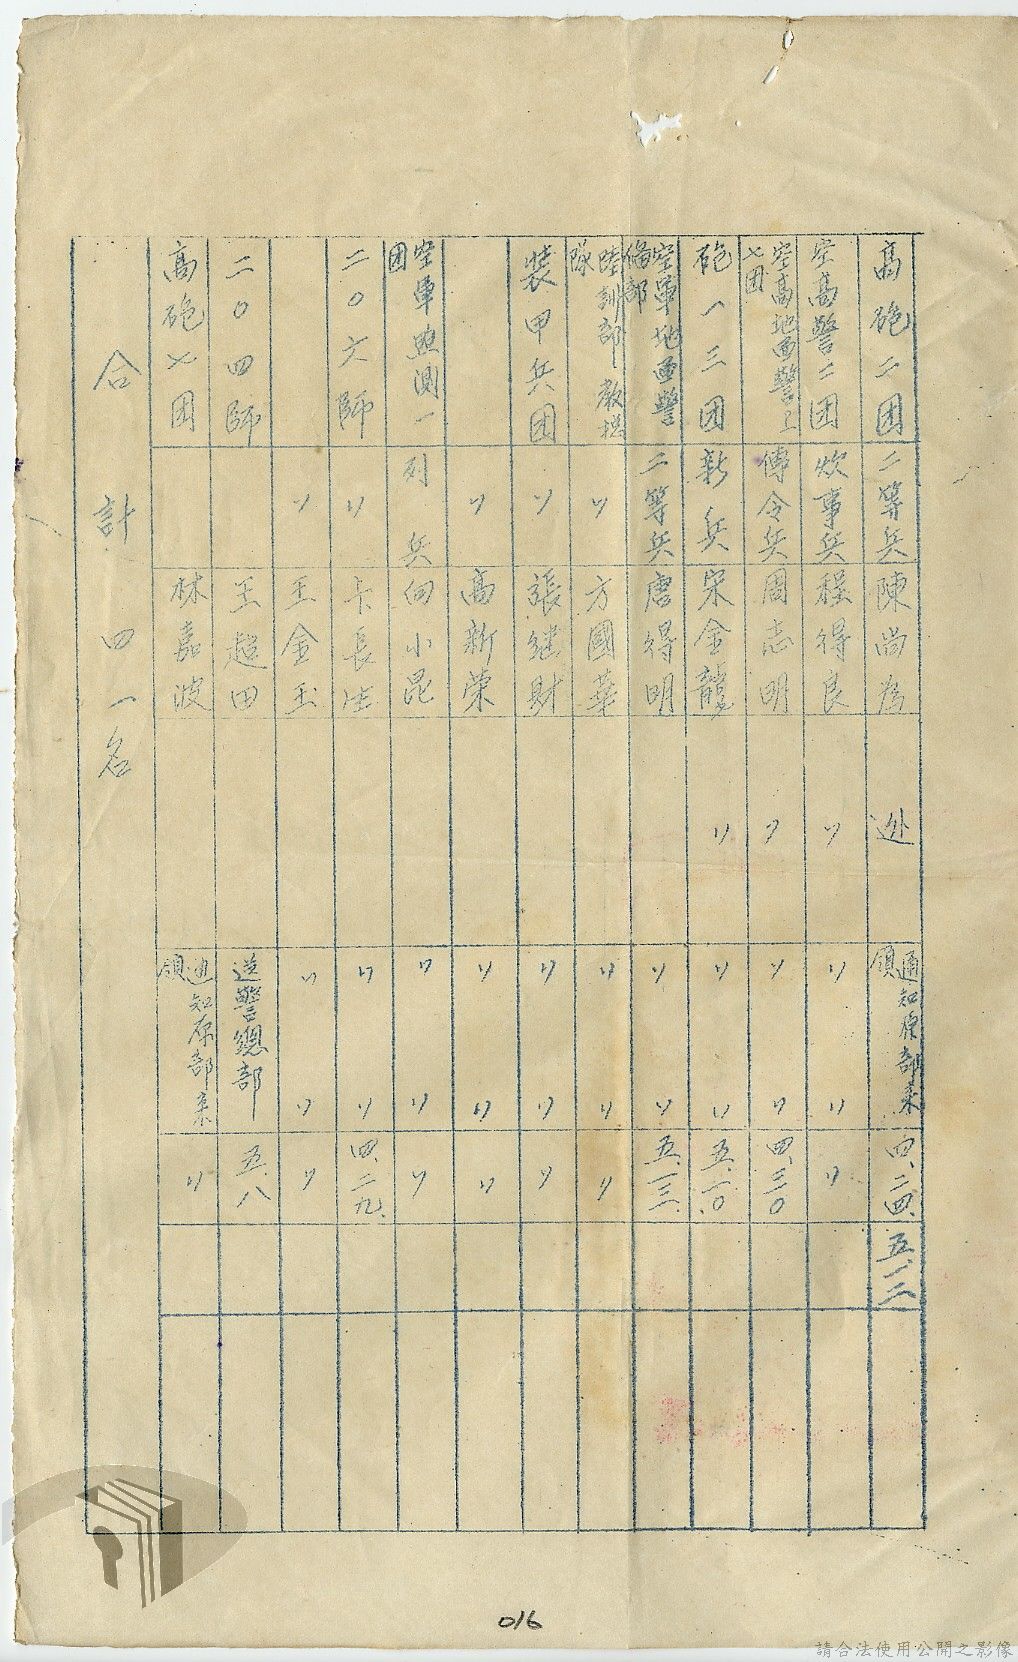 高砲二团 二等兵 陳尚為 逃 通知原部來領 四.二四. 五.一二
空高警二团 炊事兵 程得良 〃 〃 〃 〃
空高地面警上七团 傳令兵 周志明 〃 〃 〃 四.三〇
砲一三团 新兵 宋金龍 〃 〃 〃 五.一〇.
空軍地面警備部 二等兵 唐得明 〃 〃 五.一三.
陸訓部教 隊 〃 方國華 〃 〃 〃
裝甲兵团 〃 張继財 〃 〃 〃
〃 高新榮 〃 〃 〃
空軍照測一团 列兵 向小昆 〃 〃 〃
二〇六師 〃 卡長生 〃 〃 四.二九.
〃 王金玉 〃 〃 〃
二〇四師 王超田 送警總部 五.八
高砲七团 林嘉波 通知原部來領 〃
合計四一名
016
請合法使用公開之影像